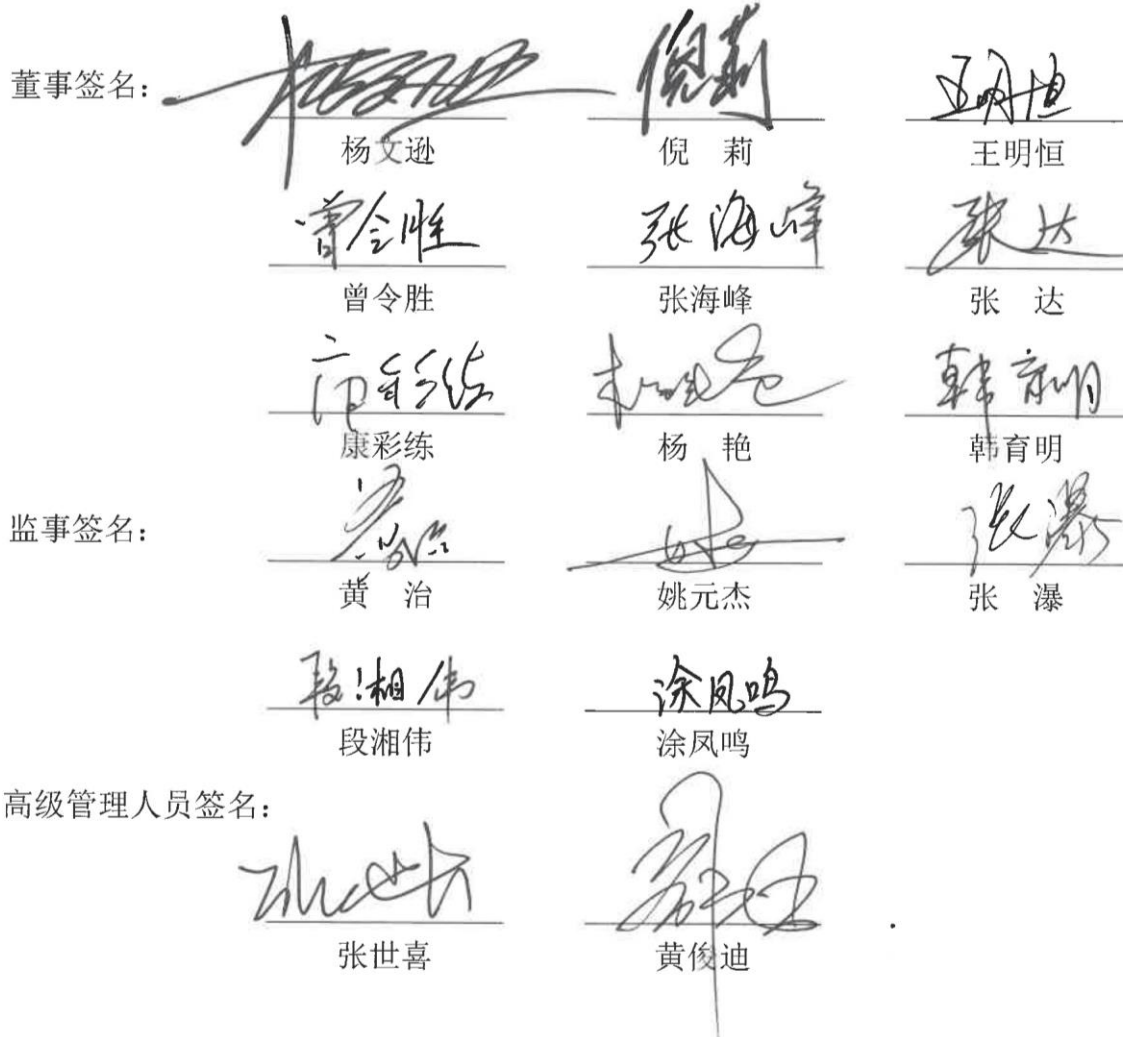 董事签名：
杨文逊 倪 莉 王明恒
曾令胜 张海峰 张 达
曾令胜 张海峰 张 达
康彩练 杨 艳 韩育明
监事签名：
黄 治 姚元杰 张 瀑
段湘伟 涂凤鸣
段湘伟 涂凤鸣
高级管理人员签名：
张世喜 黄俊迪